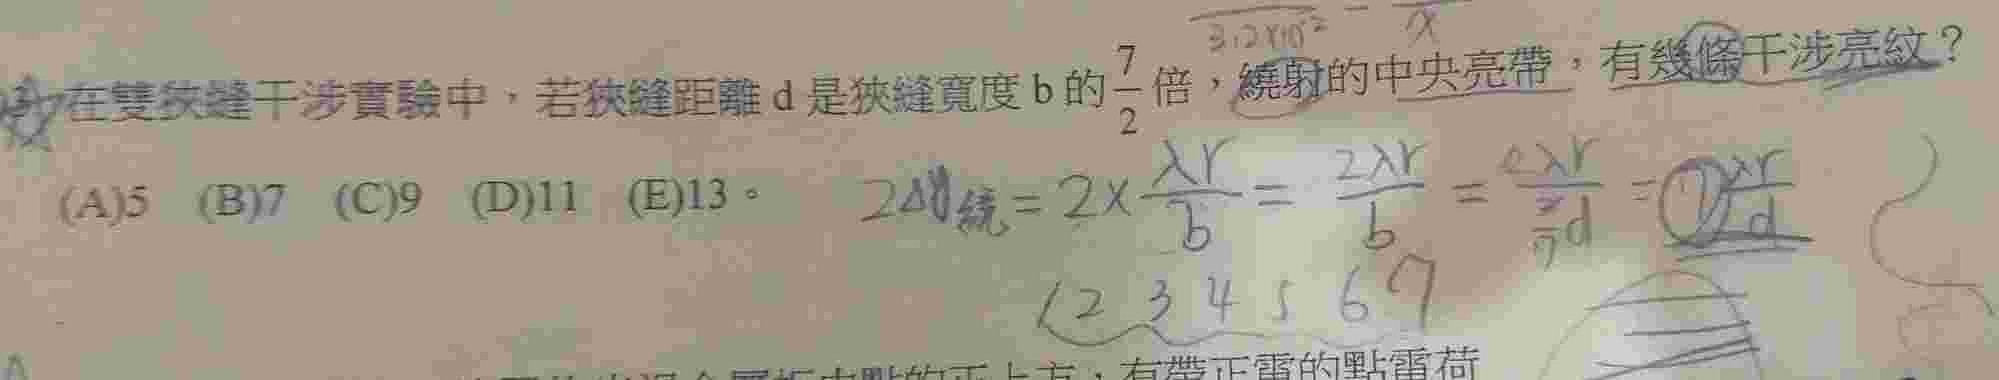 3.2×10⁻² - x
在雙狹縫干涉實驗中，若狹縫距離 d 是狹縫寬度 b 的 7/2 倍，繞射的中央亮帶，有幾條干涉亮紋？
(A)5 (B)7 (C)9 (D)11 (E)13。
2Δy繞 = 2×λr/b = 2λr/b = 2λr/(2/7 d) = 7λr/d
1 2 3 4 5 6 7
中點的正上方，有帶正電的點電荷